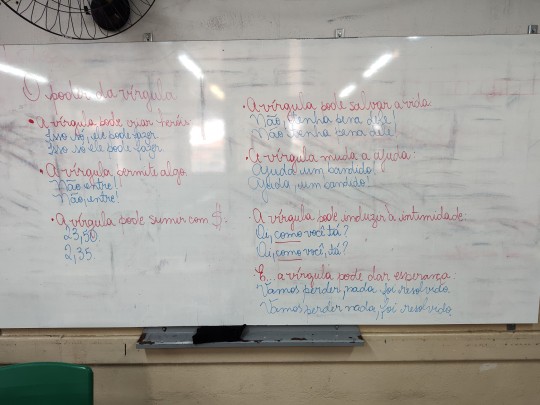 O poder da vírgula
• A vírgula pode criar heróis:
Isso só, ele pode fazer.
Isso só ele pode fazer.
• A vírgula permite algo:
Não entre!
Não, entre!
• A vírgula pode sumir com $:
23,50
2,35.
• A vírgula pode salvar a vida:
Não, tenha pena dele!
Não tenha pena dele!
• A vírgula muda a ajuda:
Ajuda um bandido!
Ajuda, um bandido!
• A vírgula pode induzir à intimidade:
Oi, como você tá?
Oi, como você, tá?
E... a vírgula pode dar esperança:
Vamos perder, nada foi resolvido.
Vamos perder nada, foi resolvido.